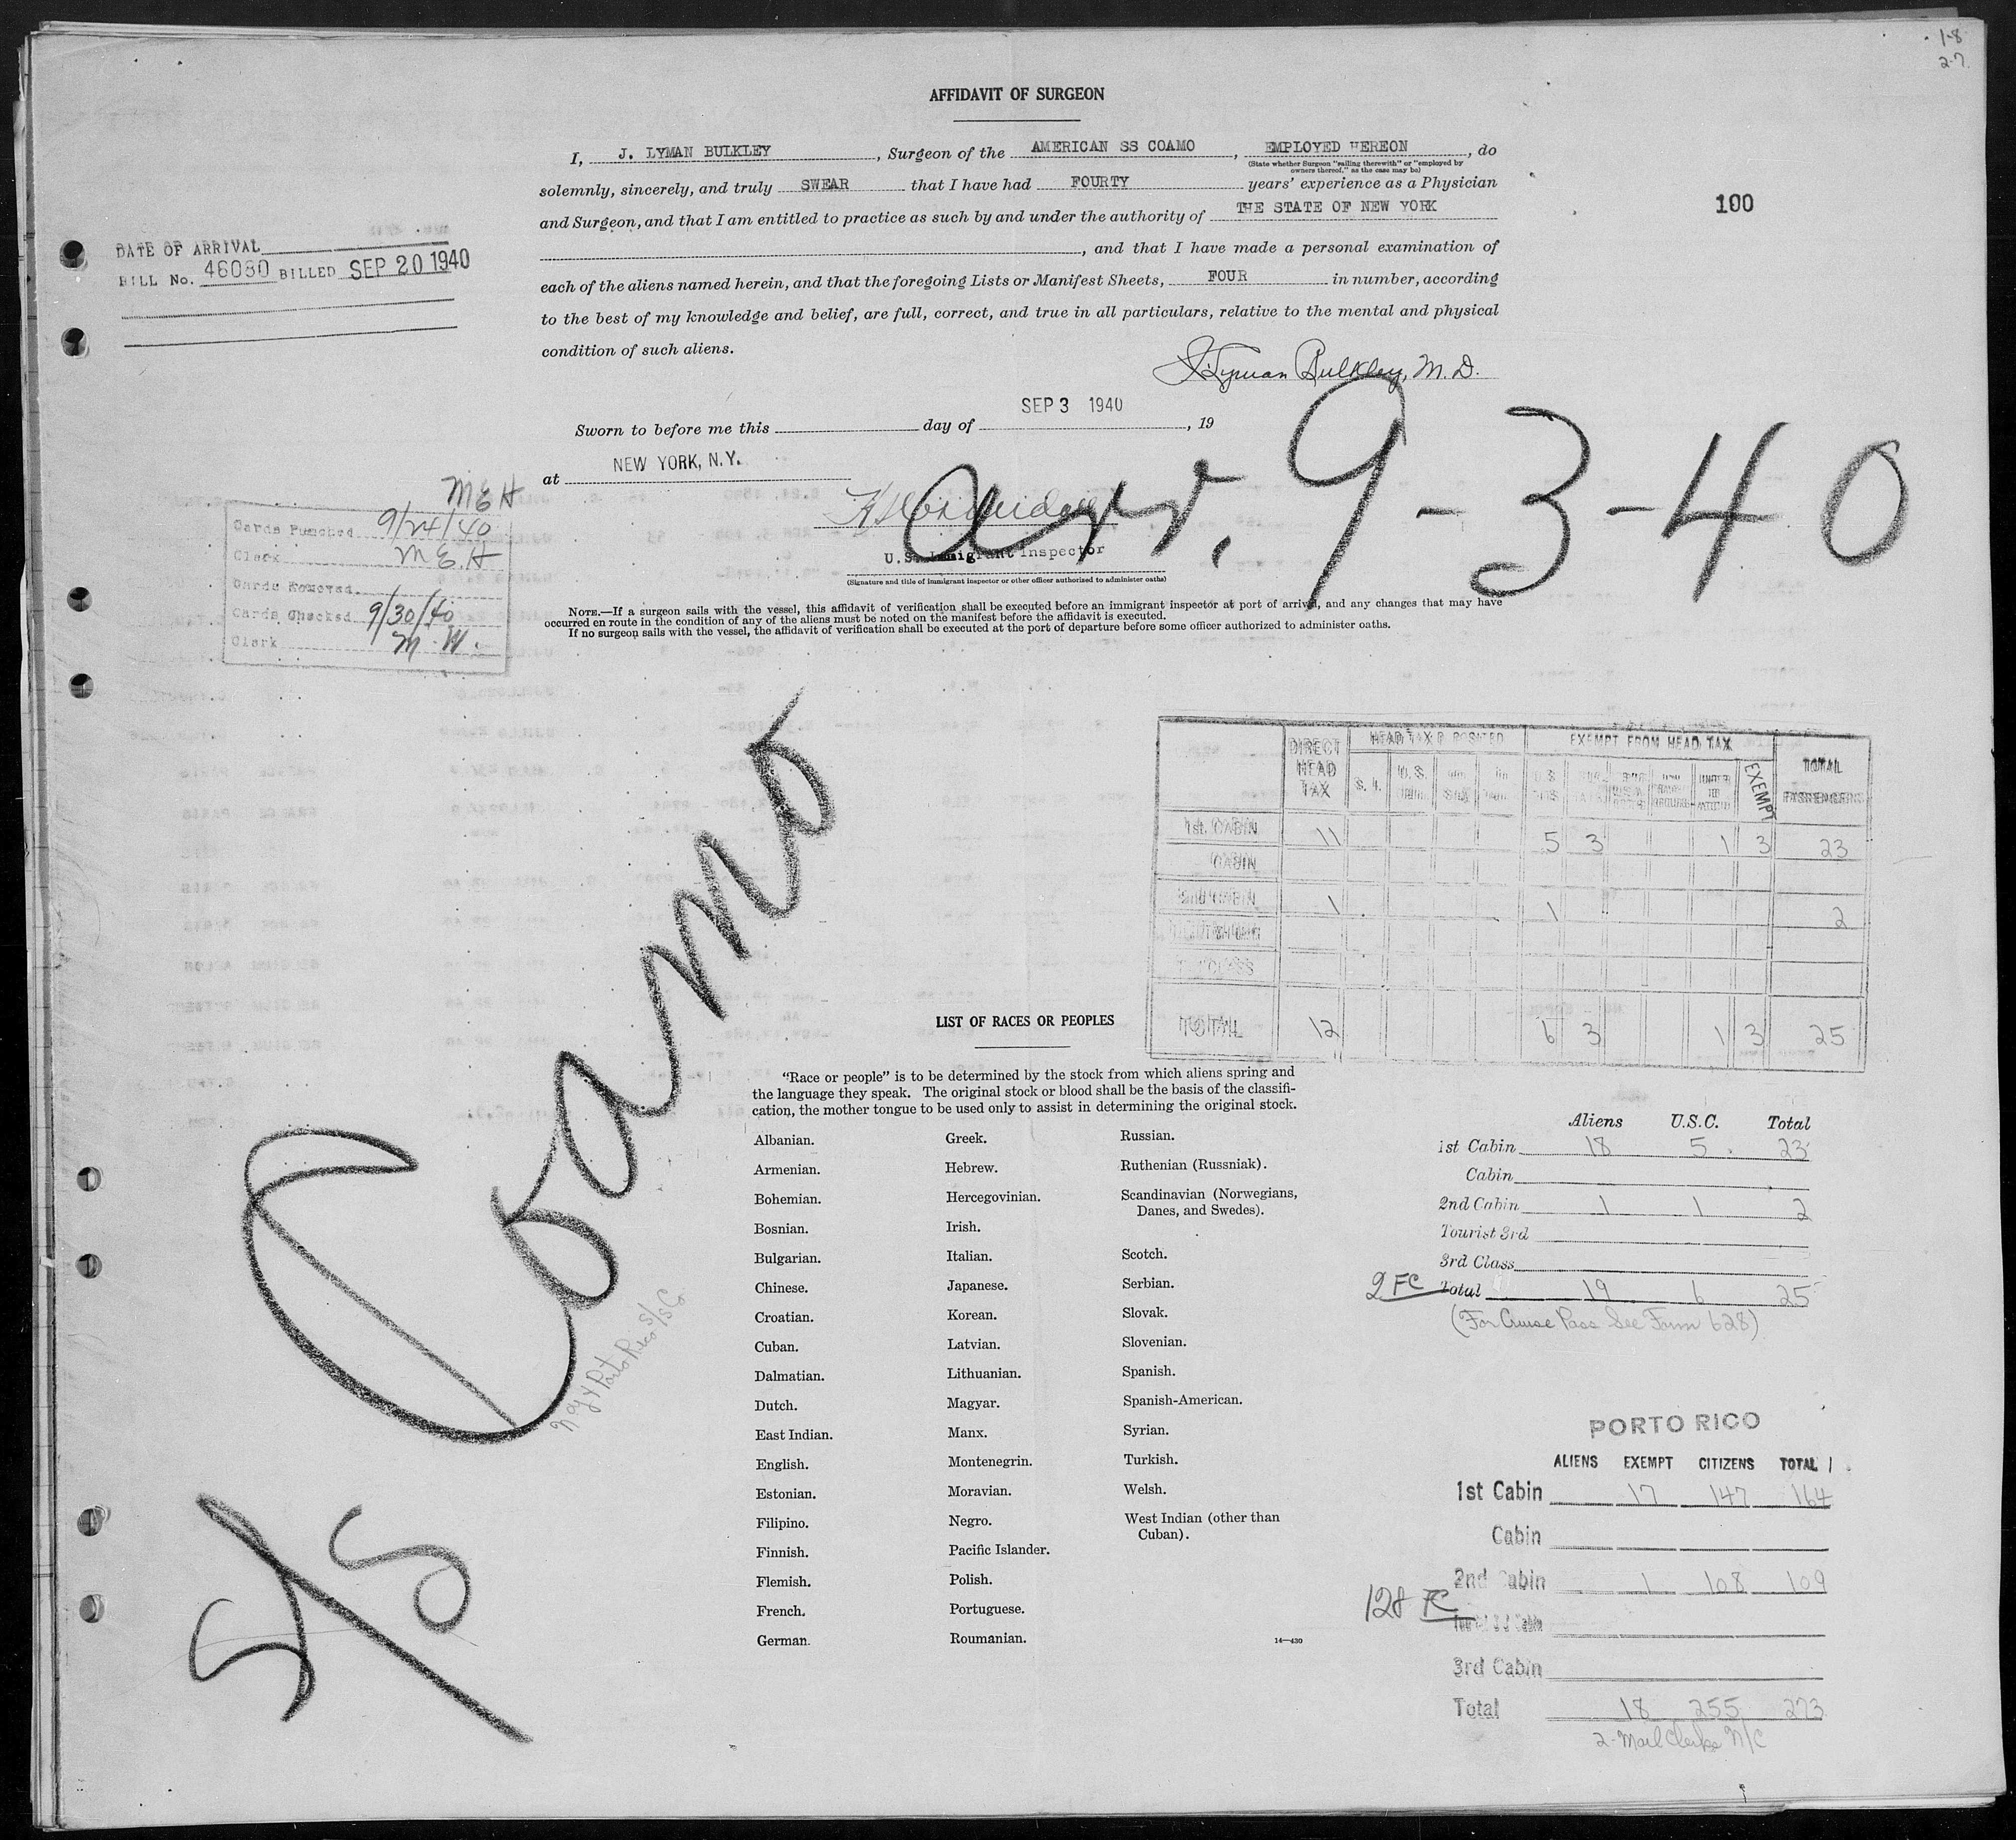 1-8
2-7
AFFIDAVIT OF SURGEON
I, J. LYMAN BULKLEY, Surgeon of the AMERICAN SS COAMO, EMPLOYED HEREON, do
(State whether Surgeon "sailing therewith" or "employed by owners thereof," as the case may be)
solemnly, sincerely, and truly SWEAR that I have had FOURTY years' experience as a Physician
and Surgeon, and that I am entitled to practice as such by and under the authority of THE STATE OF NEW YORK
100
, and that I have made a personal examination of
each of the aliens named herein, and that the foregoing Lists or Manifest Sheets, FOUR in number, according
to the best of my knowledge and belief, are full, correct, and true in all particulars, relative to the mental and physical
condition of such aliens.
DATE OF ARRIVAL
BILL No. 46080 BILLED SEP 20 1940
J. Lyman Bulkley, M.D.
Sworn to before me this day of SEP 3 1940, 19
at NEW YORK, N.Y.
Arr. 9-3-40
U.S. Immigrant Inspector
(Signature and title of immigrant inspector or other officer authorized to administer oaths)
MEH
Cards Punched 9/24/40
Clerk MEH
Cards Removed
Cards Checked 9/30/40
Clerk M.W.
NOTE.—If a surgeon sails with the vessel, this affidavit of verification shall be executed before an immigrant inspector at port of arrival, and any changes that may have
occurred en route in the condition of any of the aliens must be noted on the manifest before the affidavit is executed.
If no surgeon sails with the vessel, the affidavit of verification shall be executed at the port of departure before some officer authorized to administer oaths.
S/S Coamo
N.Y. & Porto Rico S/S Co
DIRECT HEAD TAX HEAD TAX DEPOSITED EXEMPT FROM HEAD TAX EXEMPT TOTAL PASSENGERS
1st. CABIN 11 5 3 1 3 23
CABIN
2nd CABIN 1 1 2
TOTAL 12 6 3 1 3 25
LIST OF RACES OR PEOPLES
"Race or people" is to be determined by the stock from which aliens spring and
the language they speak. The original stock or blood shall be the basis of the classifi-
cation, the mother tongue to be used only to assist in determining the original stock.
Albanian.
Armenian.
Bohemian.
Bosnian.
Bulgarian.
Chinese.
Croatian.
Cuban.
Dalmatian.
Dutch.
East Indian.
English.
Estonian.
Filipino.
Finnish.
Flemish.
French.
German.
Greek.
Hebrew.
Hercegovinian.
Irish.
Italian.
Japanese.
Korean.
Latvian.
Lithuanian.
Magyar.
Manx.
Montenegrin.
Moravian.
Negro.
Pacific Islander.
Polish.
Portuguese.
Roumanian.
Russian.
Ruthenian (Russniak).
Scandinavian (Norwegians,
Danes, and Swedes).
Scotch.
Serbian.
Slovak.
Slovenian.
Spanish.
Spanish-American.
Syrian.
Turkish.
Welsh.
West Indian (other than
Cuban).
14—430
Aliens U.S.C. Total
1st Cabin 18 5 23
Cabin
2nd Cabin 1 1 2
Tourist 3rd
3rd Class
2 FC Total 19 6 25
(For Cruise Pass See Form 628)
PORTO RICO
ALIENS EXEMPT CITIZENS TOTAL
1st Cabin 17 147 164
Cabin
2nd Cabin 1 108 109
128 FC
3rd Cabin
Total 18 255 273
2-Mail Clerks N/C